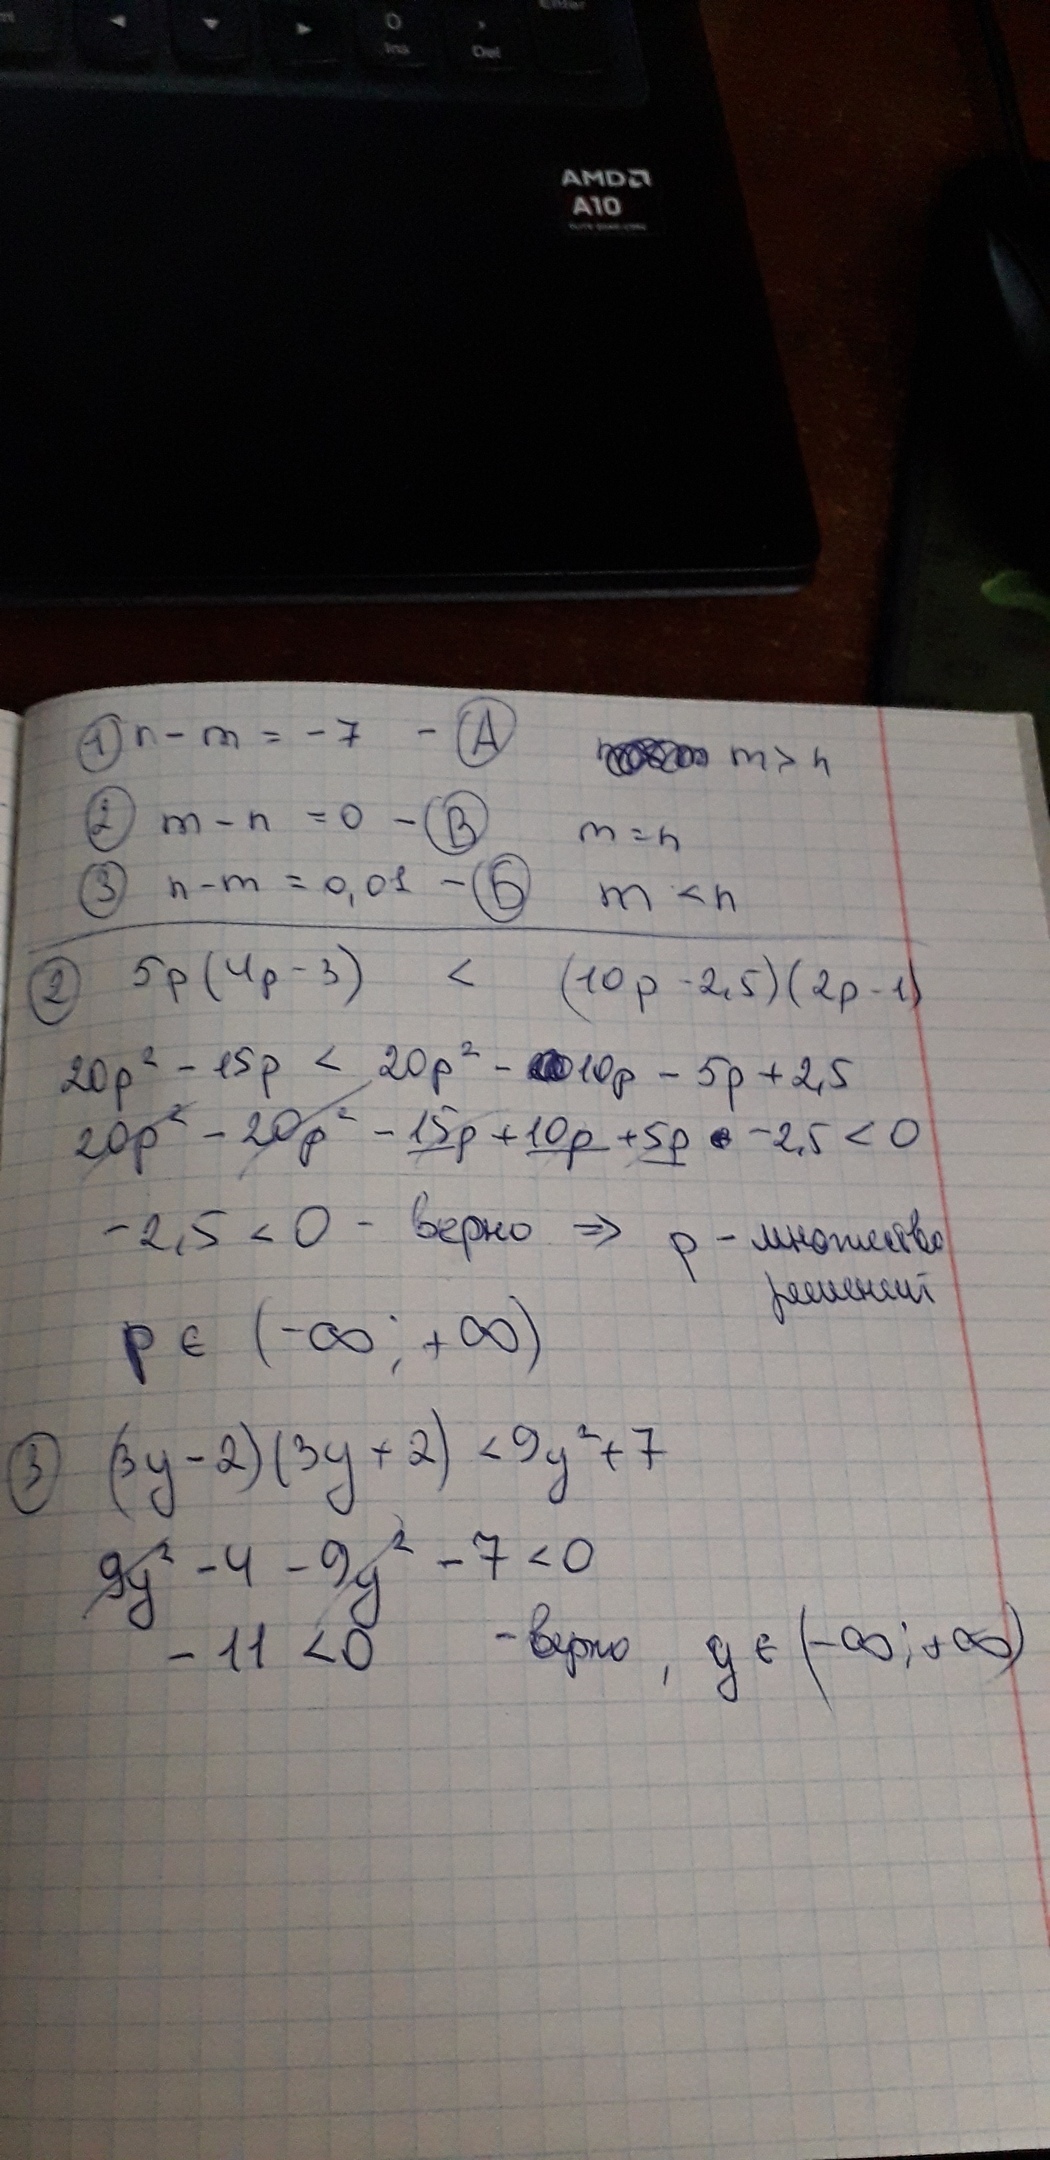 Enter
0
Ins
Del
AMD
A10
① n - m = -7 - Ⓐ m > n
② m - n = 0 - Ⓑ m = n
③ n - m = 0,01 - Ⓑ m < n
② 5p(4p-3) < (10p-2,5)(2p-1)
20p² - 15p < 20p² - 10p - 5p + 2,5
20p² - 20p² - 15p + 10p + 5p - 2,5 < 0
-2,5 < 0 - верно ⇒ p - множество
решений
p ∈ (-∞; +∞)
③ (3y-2)(3y+2) < 9y² + 7
9y² - 4 - 9y² - 7 < 0
- 11 < 0 - верно, y ∈ (-∞; +∞)